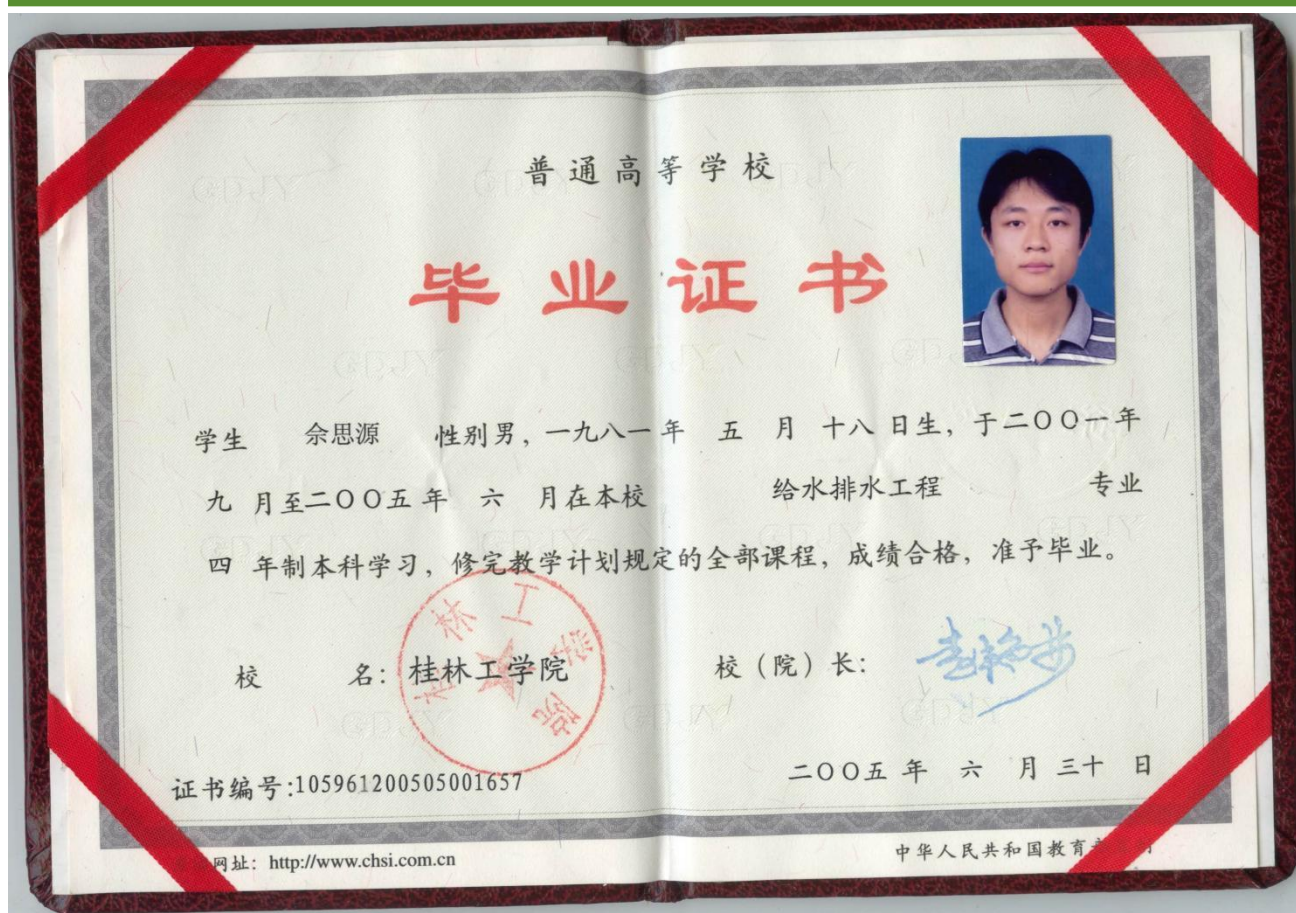 普通高等学校
毕业证书
学生 佘思源 性别男，一九八一年 五 月 十八 日生，于二〇〇一年
九 月至二〇〇五年 六 月在本校 给水排水工程 专业
四 年制本科学习，修完教学计划规定的全部课程，成绩合格，准予毕业。
桂林工学院
校 名：桂林工学院 校（院）长：
证书编号:105961200505001657 二〇〇五年 六 月 三十 日
网址：http://www.chsi.com.cn 中华人民共和国教育
GDJY